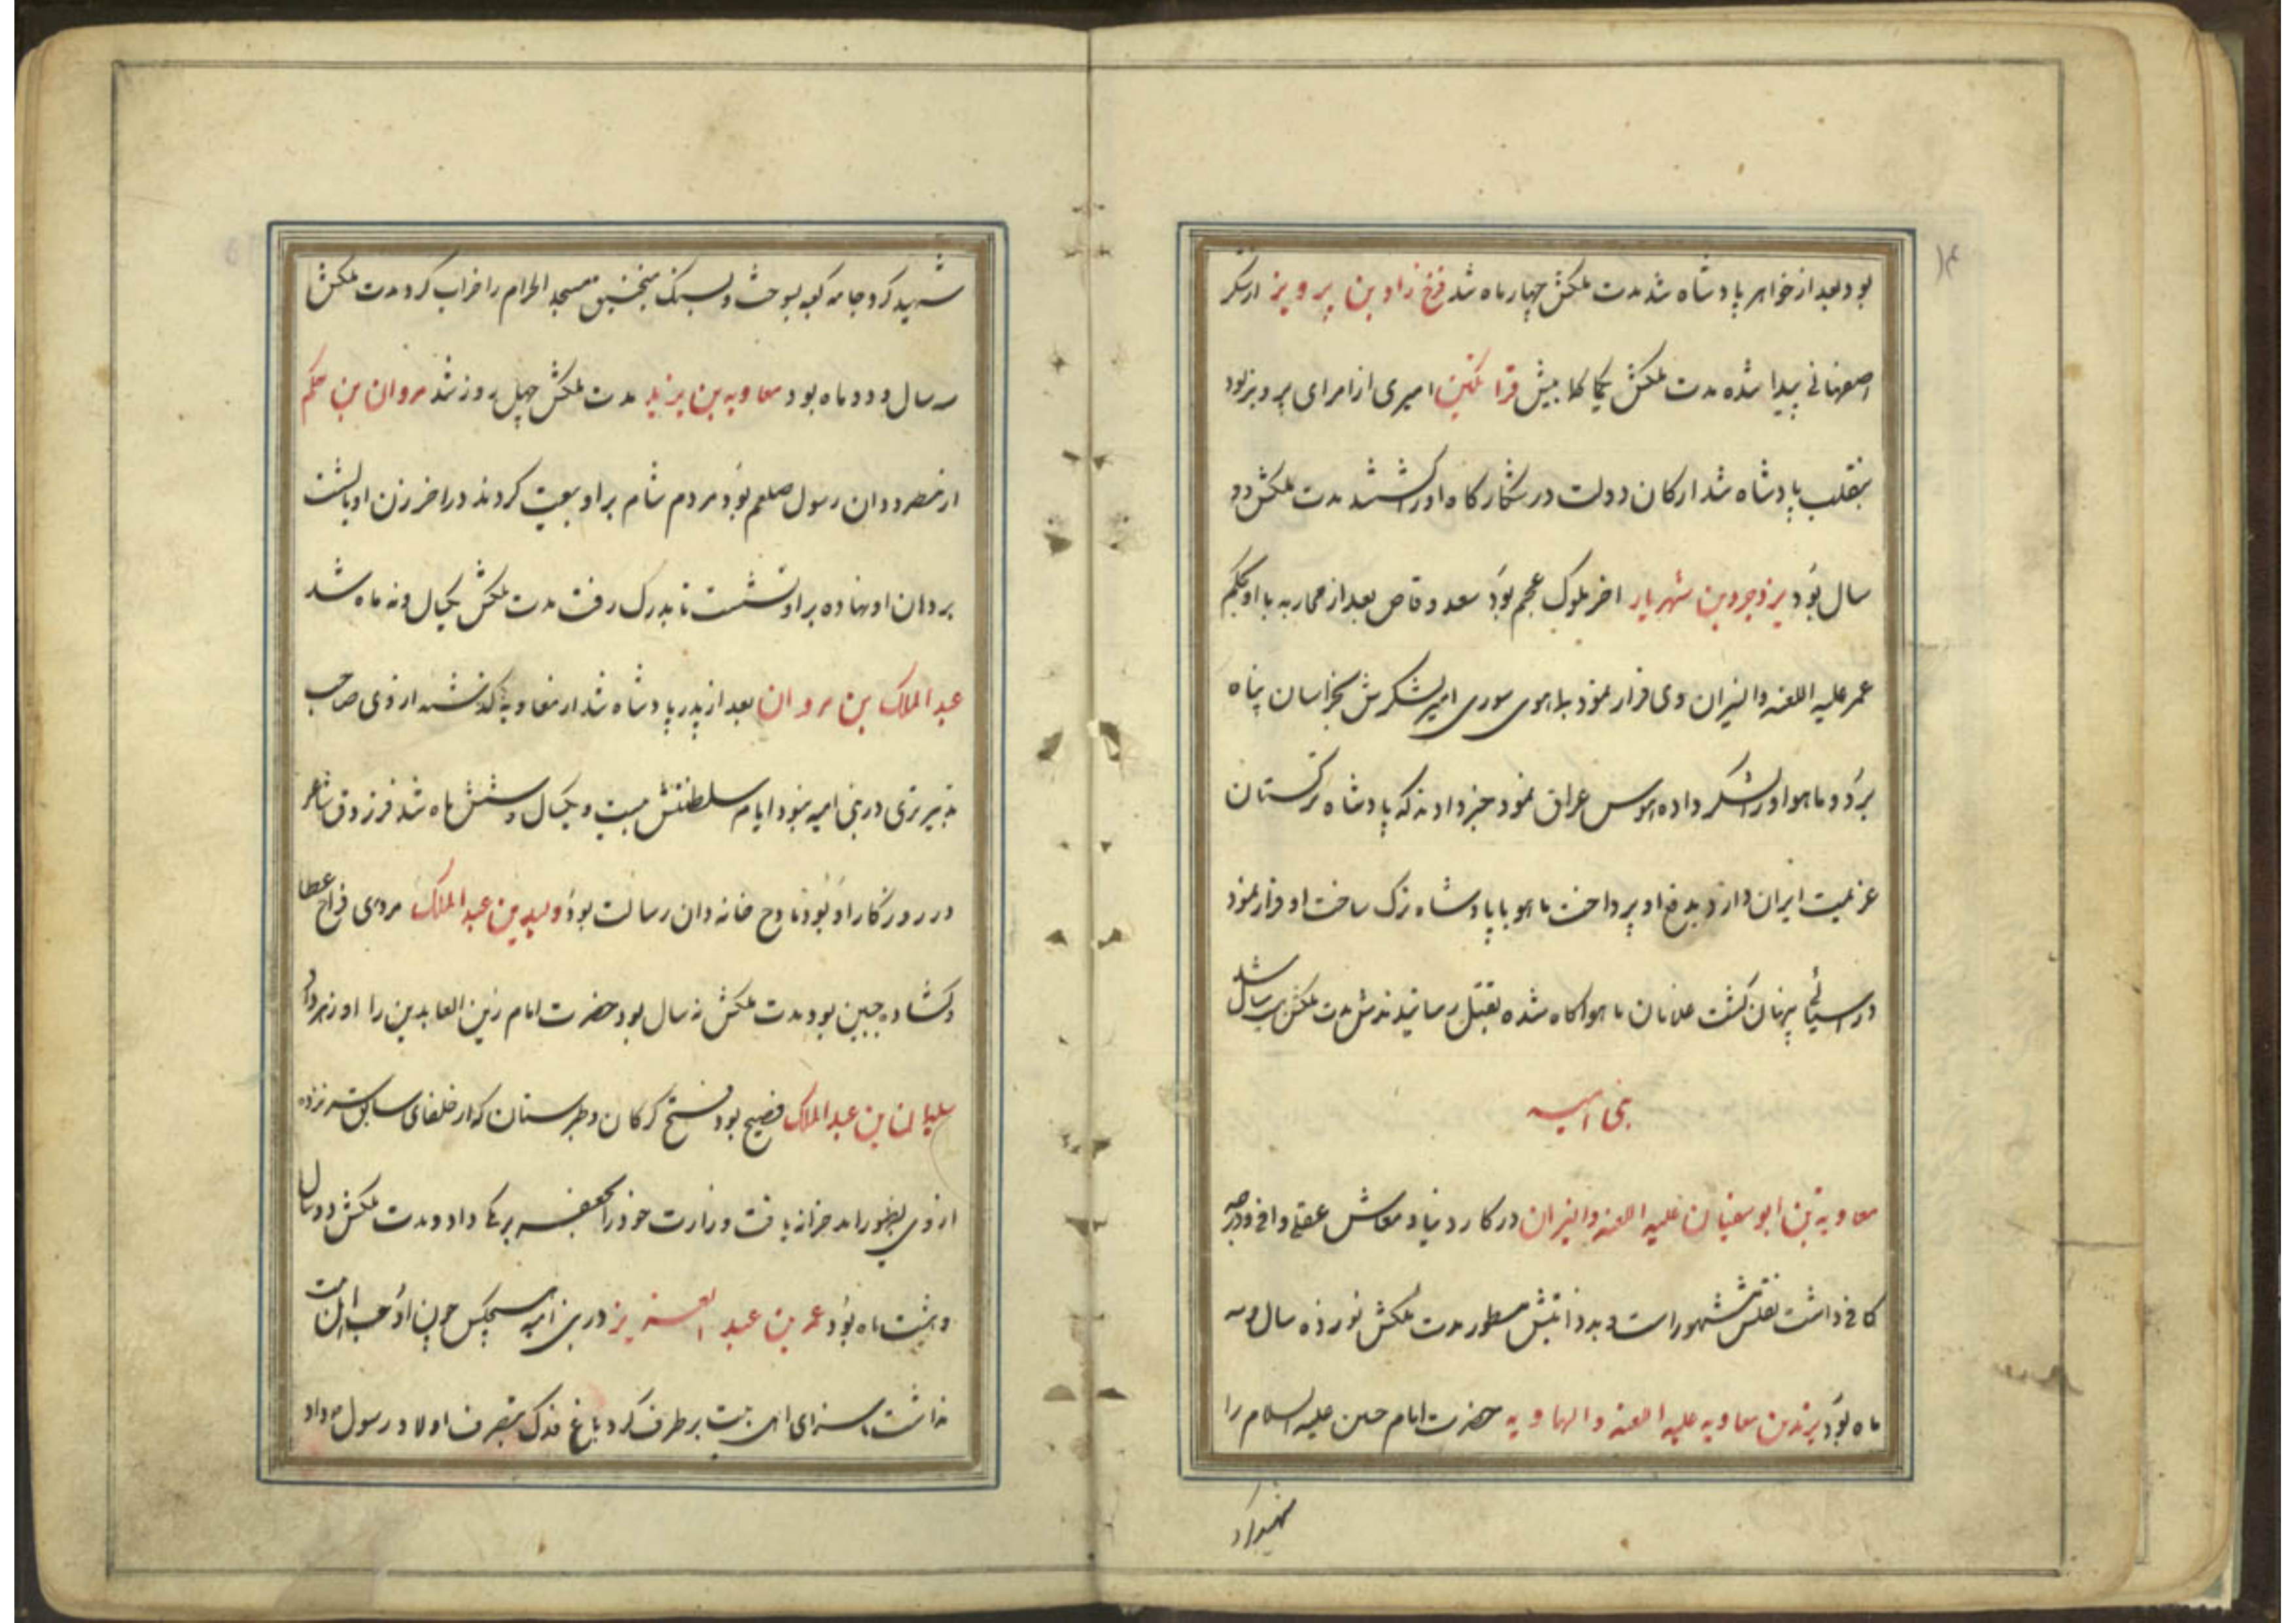 بود بعد از خواهر پادشاه شد مدت ملکش چهار ماه شد فرخ زاد بن پرویز از شکر
اصفهانی پیدا شده مدت ملکش یکماه بیش قرا تکین امیری از امرای پرویز بود
بتقلب پادشاه شد ارکان دولت در شکارگاه اورا کشتند مدت ملکش دو
سال بود یزدجرد بن شهریار اخر ملوک عجم بود سعد وقاص بعد از محاربه با او بحکم
عمر علیه اللعنه والنیران وی فرار نمود بماهوی سوری امیر لشکرش بخراسان پناه
برد و ماهو اورا لشکر داده هوس عراق نمود خبر دادند که پادشاه ترکستان
عزیمت ایران دارد بدفع او پرداخت ماهو با پادشاه ترک ساخت او فرار نمود
در اسیائی پنهان گشت غلامان ماهو اکاه شده بقتل رسانیدندش مدت ملکش سال شد
بنی امیه
معاویة بن ابو سفیان علیه اللعنه والنیران در کار دنیا و معاش عقلی وافر و درجه
کافی داشت نقلش مشهور است و بد ذاتیش مسطور مدت ملکش نوزده سال و سه
ماه بود یزید بن معاویه علیه اللعنه والهاویه حضرت امام حسین علیه السلام را
شهید کرد
شهید کرد و جامه کعبه بسوخت و بسنک منجنیق مسجد الحرام را خراب کرد مدت ملکش
سه سال و دو ماه بود معاویه بن یزید مدت ملکش چهل روز شد مروان بن حکم
از مطرودان رسول صلعم بود مردم شام بر او بیعت کردند در اخر زن او بالشت
بر دهان او نهاده بر او نشست تا بدرک رفت مدت ملکش یکسال و نه ماه شد
عبد الملک بن مروان بعد از پدر پادشاه شد از معاویه گذشته از وی صاحب
تدبیرتری در بنی امیه نبود ایام سلطنتش بیست و یکسال و شش ماه شد فرزدق شاعر
در روزگار او بود مادح خانه دان رسالت بود ولید بن عبد الملک مردی فراخ عطا
و گشاده جبین بود مدت ملکش نه سال بود حضرت امام زین العابدین را او زهر داد
سلیمان بن عبد الملک فصیح بود فتح گرگان و طبرستان که از خلفای سابق نشده
از وی بظهور امد خزانه یافت وزارت خود را بجعفر برمکی داد و مدت ملکش دو سال
و هشت ماه بود عمر بن عبد العزیز در بنی امیه هیچکس چون او محب
نداشت ناسزای اهل بیت بر طرف کرد باغ فدک بتصرف اولاد رسول داد